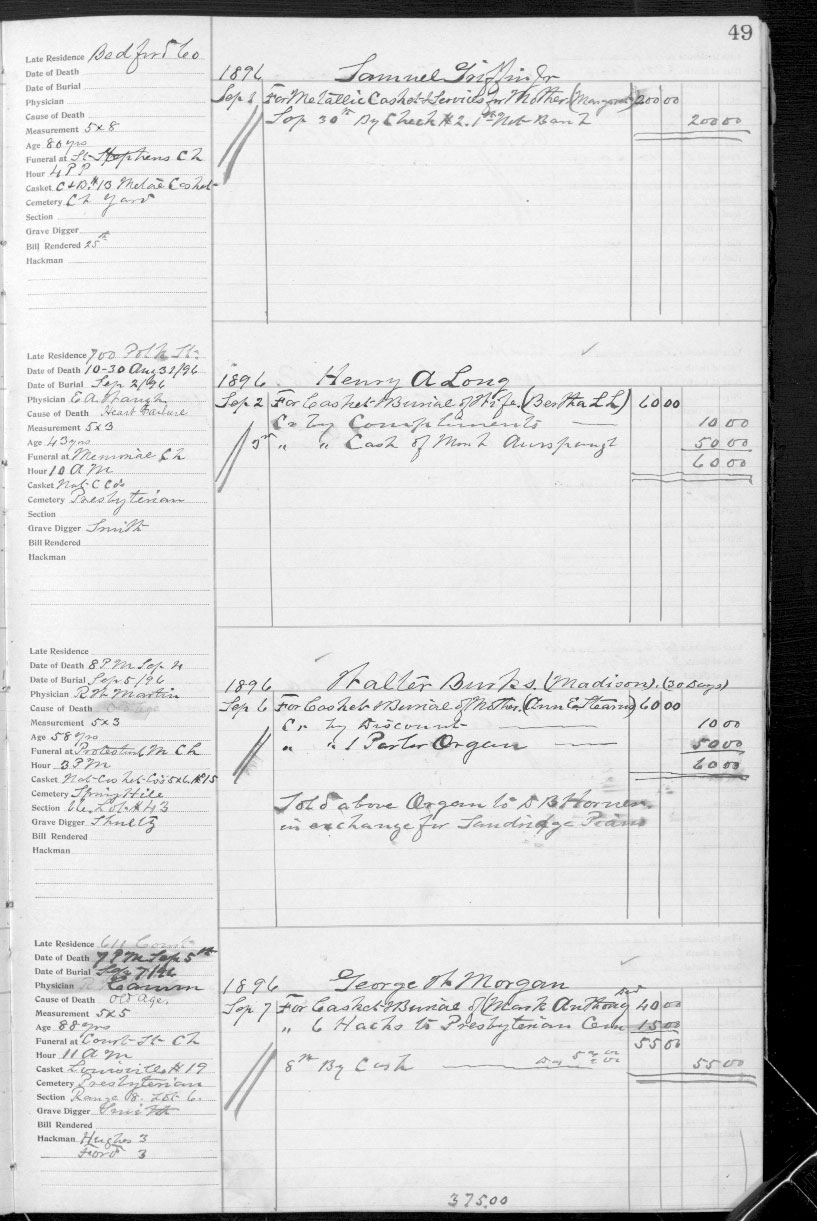 49
Late Residence Bedford Co
Date of Death
Date of Burial
Physician
Cause of Death
Measurement 5x8
Age 80 yrs
Funeral at St Stephens Ch
Hour 4 P
Casket C & B. #13 Metalic Casket
Cemetery Ch Yard
Section
Grave Digger
Bill Rendered 25th
Hackman
1896 Samuel Griffin Jr
Sep 1 For Metallic Casket & Services for Mother (Margaret) 200 00
Sep 30th By Check #2. 1st Nat Bank 200 00
Late Residence 700 Polk St.
Date of Death 10-30 Aug 31/96
Date of Burial Sep 2/96
Physician E A
Cause of Death Heart Failure
Measurement 5x3
Age 43 yrs
Funeral at Memorial Ch
Hour 10 A M
Casket Nat C Co's
Cemetery Presbyterian
Section
Grave Digger Smith
Bill Rendered
Hackman
1896. Henry A Long
Sep 2 For Casket & Burial of Wife. (Bertha L L) 60 00
Cr by Compliments 10 00
3rd " " Cash of 50 00
60 00
Late Residence
Date of Death 8 P M Sep 4
Date of Burial Sep 5/96
Physician R W Martin
Cause of Death
Measurement 5x3
Age 58 yrs
Funeral at Protestant M Ch
Hour 3 P M
Casket Nat Casket Co's 5x6. #15
Cemetery Spring Hill
Section Lot # 43
Grave Digger Shultz
Bill Rendered
Hackman
1896 Walter Burks. (Madison). (30 Days)
Sep 6 For Casket & Burial of Mother. (Ann E. Stearns) 60 00
Cr by Discount 10 00
" " 1 Parlor Organ 50 00
60 00
Sold above Organ to D B Horner.
in exchange for Sandridge Piano
Late Residence 611 Court
Date of Death 7 P M Sep 5th
Date of Burial Sep 7/96
Physician
Cause of Death Old Age.
Measurement 5x5
Age 88 yrs
Funeral at Court St Ch
Hour 11 A M
Casket Louisville # 19
Cemetery Presbyterian
Section Range 8. Lot 6.
Grave Digger Smith
Bill Rendered
Hackman Hughes 3
Ford 3
1896 George W Morgan
Sep 7 For Casket & Burial of (Mark Anthony 40 00
" 6 Hacks to Presbyterian Cem 15 00
55 00
8th By Cash 55 00
375.00